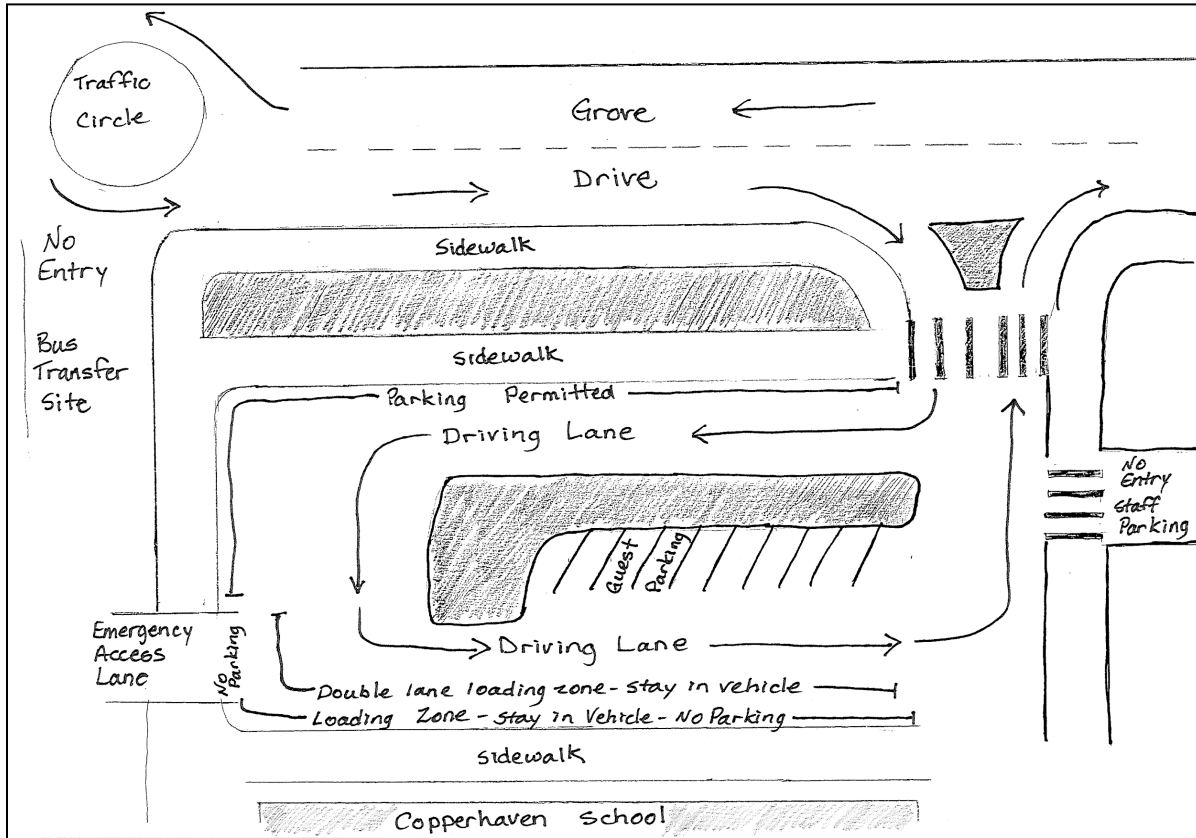 Traffic
Circle
Grove
Drive
No
Entry
Sidewalk
Bus
Transfer
Site
Sidewalk
Parking Permitted
Driving Lane
No
Entry
Staff
Parking
Guest Parking
Emergency
Access
Lane
No Parking
Driving Lane
Double lane loading zone - stay in vehicle
Loading Zone - Stay in Vehicle - No Parking
Sidewalk
Copperhaven School